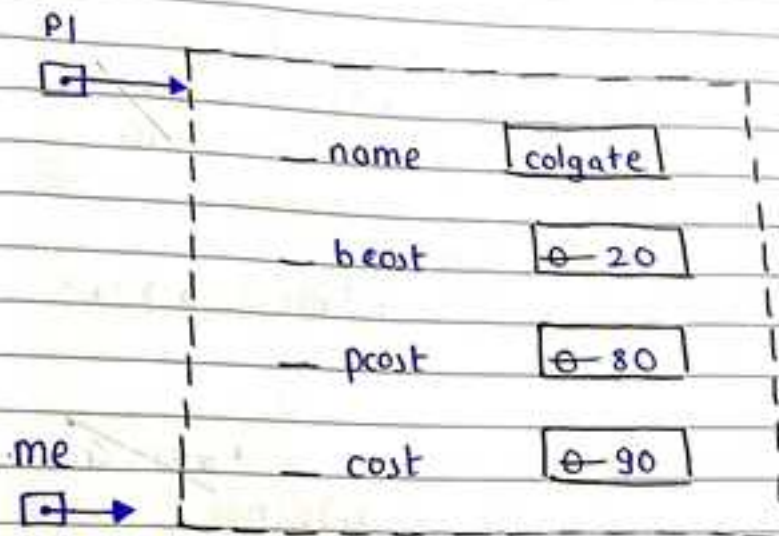 P1
_ name colgate
_ bcost 0 20
_ pcost 0 80
me _ cost 0 90